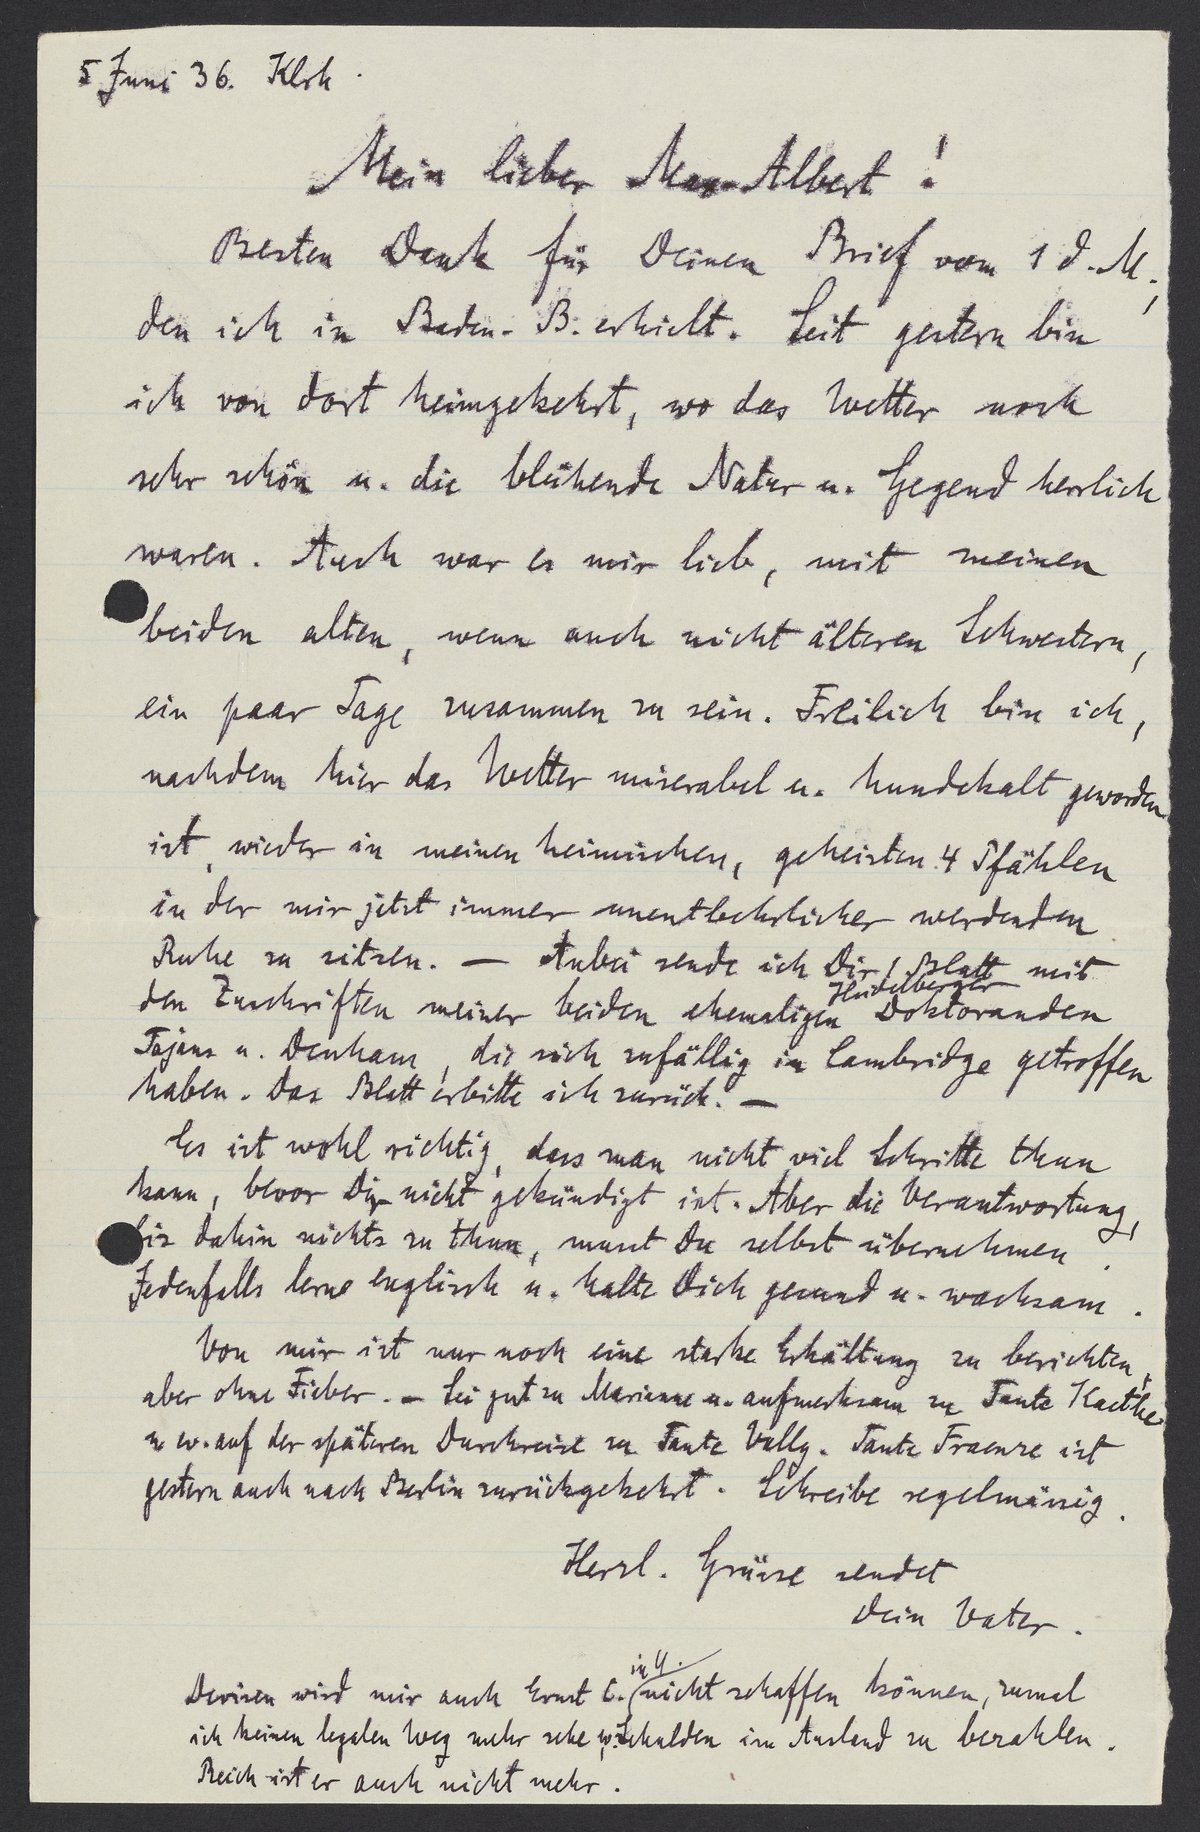 5 Juni 36. Klrh.
Mein lieber Max-Albert!
Besten Dank für Deinen Brief vom 1 d. M.,
den ich in Baden-B. erhielt. Seit gestern bin
ich von dort heimgekehrt, wo das Wetter noch
sehr schön u. die blühende Natur u. Gegend herrlich
waren. Auch war es mir lieb, mit meinen
beiden alten, wenn auch nicht älteren Schwestern,
ein paar Tage zusammen zu sein. Freilich bin ich,
nachdem hier das Wetter miserabel u. hundekalt geworden
ist, wieder in meinen heimischen, geheizten 4 Pfählen
in der mir jetzt immer unentbehrlicher werdenden
Ruhe zu sitzen. — Anbei sende ich Dir 1 Blatt mit
den Zuschriften meiner beiden ehemaligen Heidelberger Doktoranden
Fajans u. Denham, die sich zufällig in Cambridge getroffen
haben. Das Blatt erbitte ich zurück. —
Es ist wohl richtig, dass man nicht viel Schritte thun
kann, bevor Dir nicht gekündigt ist. Aber die Verantwortung,
bis dahin nichts zu thun, musst Du selbst übernehmen.
Jedenfalls lerne englisch u. halte Dich gesund u. wachsam.
Von mir ist nur noch eine starke Erkältung zu berichten,
aber ohne Fieber. — Sei gut zu Marianne u. aufmerksam zu Tante Kaethe
u. ev. auf der späteren Durchreise zu Tante Vally. Tante Fraenze ist
gestern auch nach Berlin zurückgekehrt. Schreibe regelmässig.
Herzl. Grüsse sendet
Dein Vater.
Devisen wird mir auch Ernst C. in Y. nicht schaffen können, zumal
ich keinen legalen Weg mehr sehe, Schulden im Ausland zu bezahlen.
Reich ist er auch nicht mehr.